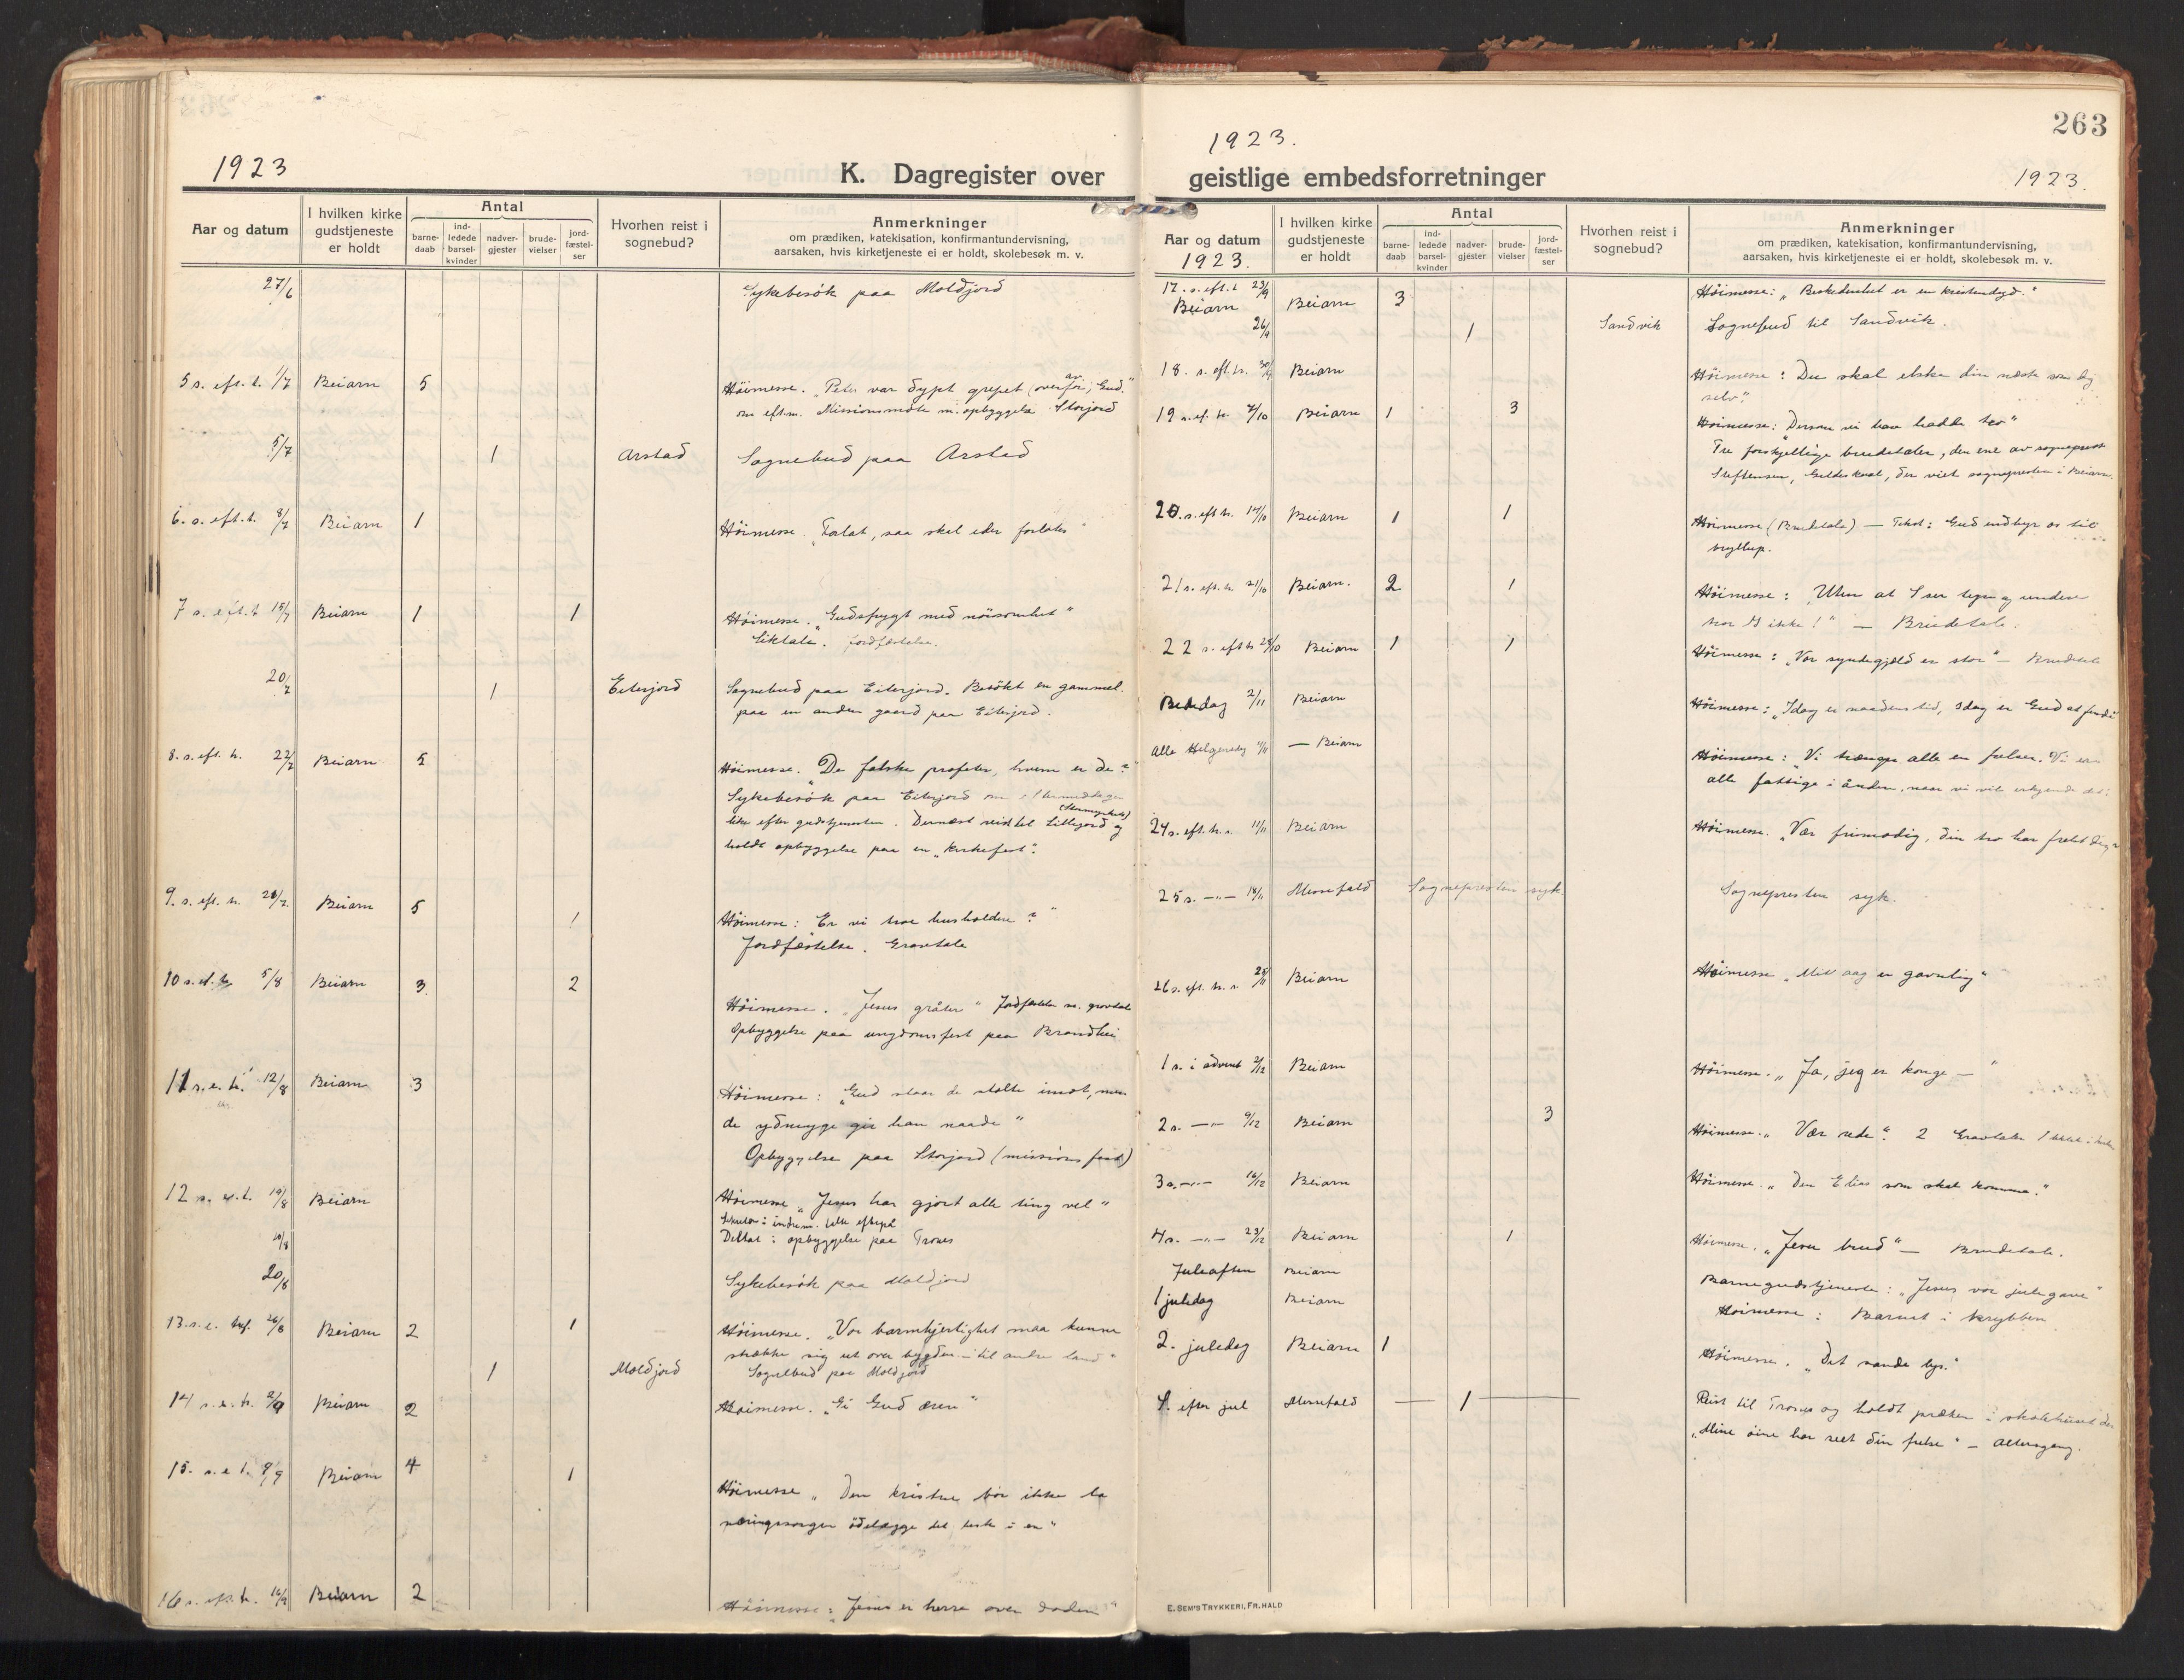 1923
K. Dagregister over
Aar og datum
I hvilken kirke gudstjeneste er holdt
Antal
barne-daab
ind-ledede barsel-kvinder
nadver-gjester
brude-vielser
jord-fæstel-ser
Hvorhen reist i sognebud?
Anmerkninger
om prædiken, katekisation, konfirmantundervisning,
aarsaken, hvis kirketjeneste ei er holdt, skolebesøk m. v.
27/6 Sykebesök paa Moldjord
5 s. eft. t. 1/7 Beiarn 5 Höimesse. "Peter var dypt grepet (overfor) av Gud."
om eft.m. Missionsmöte m. opbyggelse Storjord
5/7 1 Arstad Sognebud paa Arstad
6. s. eft. t. 8/7 Beiarn 1 Höimesse. "Forlat, saa skal eder forlates"
7 s. eft. t 15/7 Beiarn 1 1 Höimesse. "Gudsfrygt med nöisomhet"
Liktale. Jordfæstelse.
20/7 1 Eiterjord Sognebud paa Eiterjord. Besökt en gammel
paa en anden gaard paa Eiterjord.
8. s. eft. tr. 22/7 Beiarn 5 Höimesse. "De falske profeter, hvem er de?"
Sykebesök paa Eiterjord om eftermiddagen
like efter gudstjenesten. Dernæst reist til Lillejord og
holdt opbyggelse paa en "kirkefest".
9. s. eft. tr. 29/7. Beiarn 5 1 Höimesse: "Er vi troe husholdere?"
Jordfæstelse. Gravtale
10 s. ef. tr 5/8 Beiarn 3 2 Höimesse. "Jesus gråter" Jordfæstelse m. gravtale
Opbyggelse paa ungdomsfest paa Brandhei
11 s. e. tr. 12/8 Beiarn 3 Höimesse: "Gud staar de stolte imot, men
de ydmyge gir han naade"
Opbyggelse paa Storjord (missionsfest)
12 s. e. t. 19/8 Beiarn Höimesse "Jesus har gjort alle ting vel"
19/8 Deltat i opbyggelse paa Trones
20/8 Sykebesök paa Moldjord
13. s. e. tref. 26/8 Beiarn 2 1 Höimesse. "Vor barmhjertighet maa kunne
strække sig ut over bygden – til andre land"
1 Moldjord Sognebud paa Moldjord
14 s. e. tr. 2/9 Beiarn 2 Höimesse. "Gi Gud æren"
15. s. e t. 9/9 Beiarn 4 1 Höimesse "Den kristne bör ikke la
næringssorgen ödelægge det beste i en"
16 s. eft. tr. 16/9 Beiarn 2 Höimesse: "Jesus er herre over döden"
263
1923.
geistlige embedsforretninger
1923.
Aar og datum
1923.
I hvilken kirke gudstjeneste er holdt
Antal
barne-daab
ind-ledede barsel-kvinder
nadver-gjester
brude-vielser
jord-fæstel-ser
Hvorhen reist i sognebud?
Anmerkninger
om prædiken, katekisation, konfirmantundervisning,
aarsaken, hvis kirketjeneste ei er holdt, skolebesøk m. v.
17. s. eft. t 23/9 Beiarn Beiarn 3 Höimesse: "Beskedenhet er en kristendyd."
26/9 1 Sandvik Sognebud til Sandvik.
18. s. eft. tr. 30/9 Beiarn Höimesse: Du skal elske din næste som dig
selv."
19 s. ef. tr. 7/10 Beiarn 1 3 Höimesse: "Dersom vi bare hadde tro"
Tre forskjellige brudetaler, den ene av sogneprest
Steffensen, Gildeskaal, der viet sognepresten i Beiarn.
20. s. eft tr. 14/10 Beiarn 1 1 Höimesse (Brudetale) — Tekst: Gud indbyr os til
bryllup.
21 s. eft. tr. 21/10 Beiarn. 2 1 Höimesse: "Uten at I ser tegn og undere
tror I ikke!" — Brudetale.
22 s. eft tr 28/10 Beiarn 1 1 Höimesse: "Vor syndegjæld er stor" – Brudetale
Bededag 2/11 Beiarn Höimesse: "Idag er naadens tid, idag er Gud at finde"
Alle Helgensdag 4/11 — Beiarn Höimesse: "Vi trænger alle en frelser. Vi er
alle fattige i ånden, naar vi vil erkjende det."
24 s. eft. tr. s. 11/11 Beiarn Höimesse. "Vær frimodig, din tro har frelst dig"
25 s. —"— 18/11 Misvær Sognepresten syk Sognepresten syk.
26 s. eft. tr. s. 25/11 Beiarn Höimesse "Mit aag er gavnlig"
1 s. i advent 2/12 Beiarn Höimesse. "Ja, jeg er konge —"
2 s. —"— 9/12 Beiarn 3 Höimesse. "Vær rede". 2 Gravtaler
3 s. —"— 16/12 Beiarn Höimesse. "Den Elias som skal komme."
4 s. —"— 23/12 Beiarn 1 Höimesse. "Jesu brud" — Brudetale.
Juleaften Beiarn Barnegudstjeneste: "Jesus vor julegave"
1 juledag Beiarn Höimesse: Barnet i krybben
2. juledag Beiarn 1 Höimesse. "Det sande lys."
S. efter jul — 1 — Reist til Trones og holdt præken i skolehuset der
"Mine öine har seet din frelse" – Altergang.
E. SEM'S TRYKKERI, FR.HALD